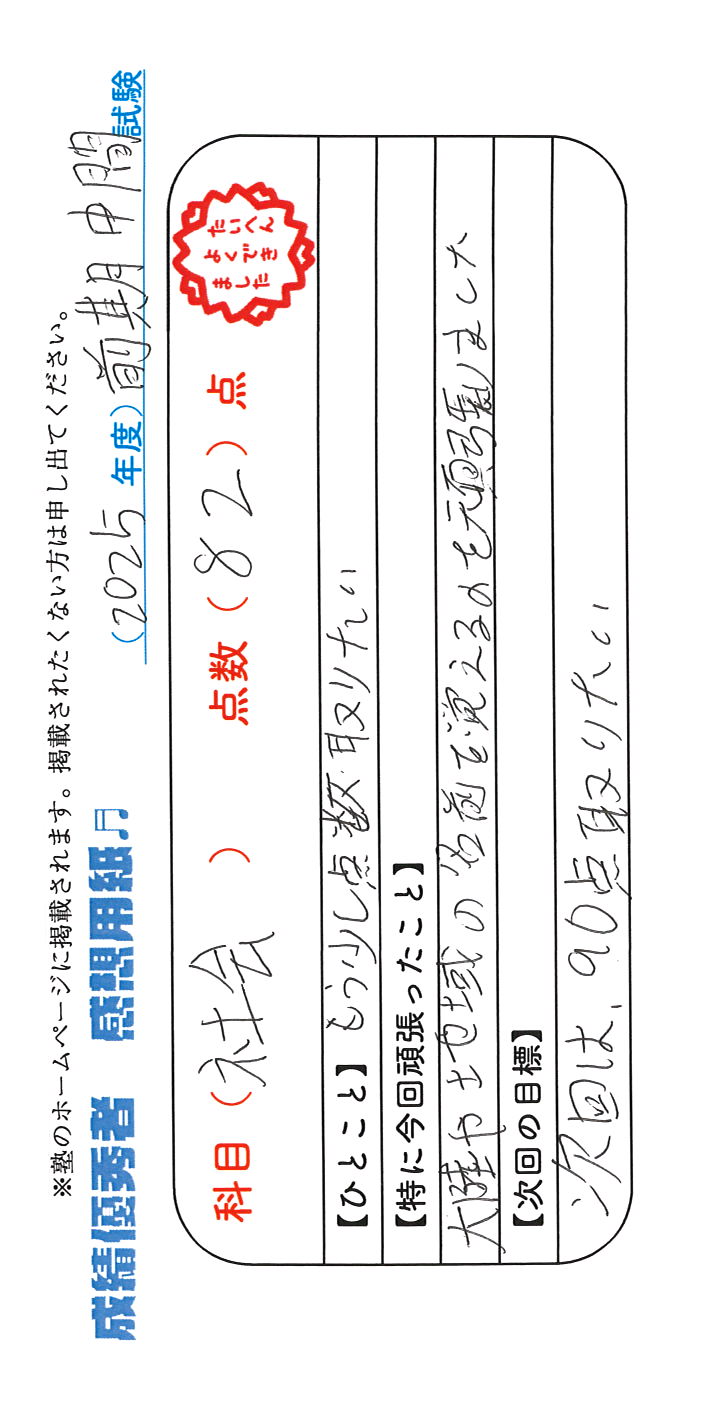 ※塾のホームページに掲載されます。掲載されたくない方は申し出てください。
成績優秀者 感想用紙♫ (2025年度) 前期中間試験
科目(社会) 点数(82)点
たいへん
よくでき
ました
【ひとこと】もう少し点数取りたい
【特に今回頑張ったこと】
大陸や地域の名前を覚えるのを頑張りました
【次回の目標】
次回は、90点取りたい